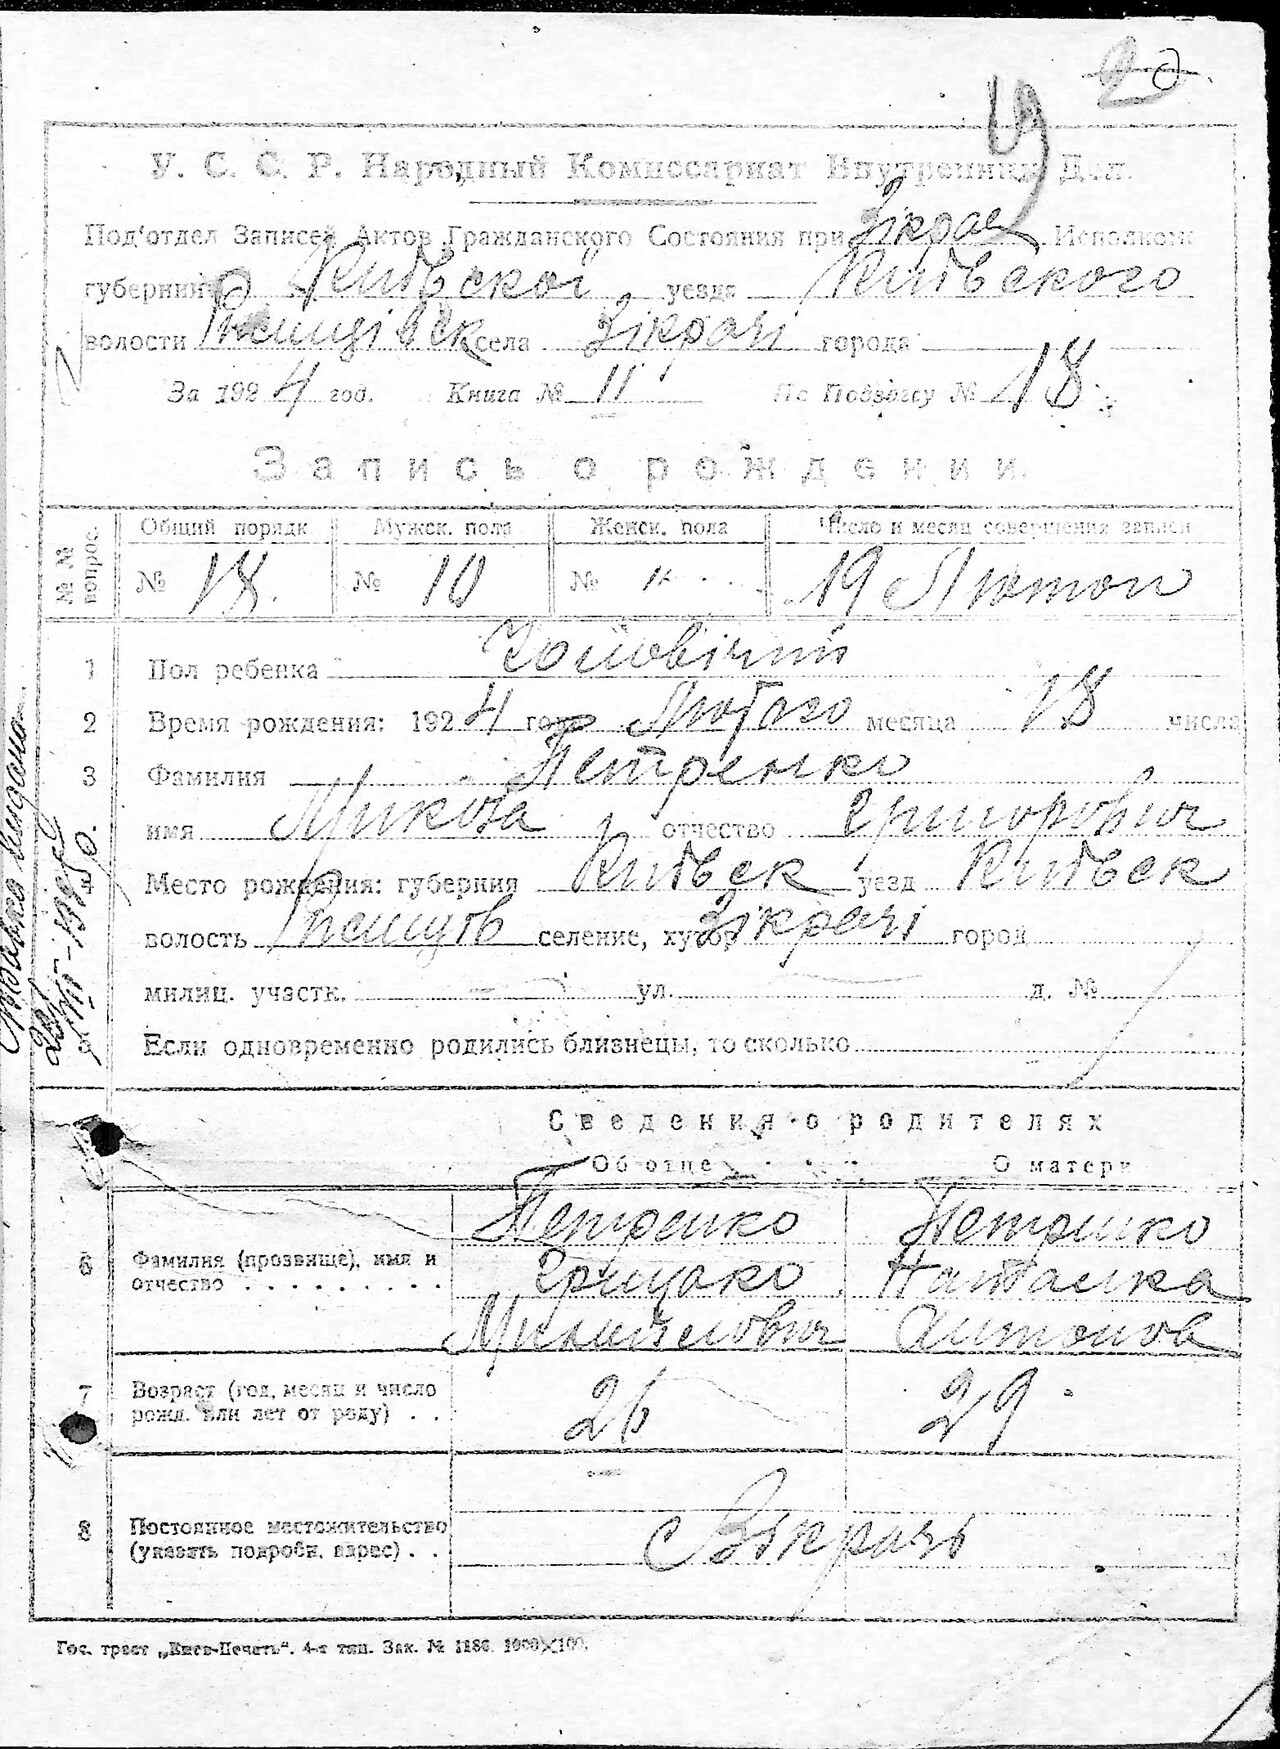 У. С. С. Р. Народный Комиссариат Внутренних Дел.
Под'отдел Записей Актов Гражданского Состояния при Зікрач Исполком
губернии Київської уезда Київського
волости Ржищівськ села Зікрачі города
За 1924 год. Книга № 11 По Подвотсу № 18.
Запись о рождении.
№ № вопрос.
Общий порядк Мужск. пола Женск. пола Число и месяц совершения записи
№ 18. № 10 № " 19 Лютого
1 Пол ребенка Чоловічий
2 Время рождения: 1924 года Лютого месяца 18 числа
3 Фамилия Петренко
имя Микола отчество Григорович
4 Место рождения: губерния Київськ уезд Київськ
волость Ржищів селение, хутор Зікрачі город
милиц. участк. ул. д. №
5 Если одновременно родились близнецы, то сколько
Сведения о родителях
Об отце О матери
6 Фамилия (прозвище), имя и отчество
Петренко Петренко
Грицько Наталка
Антонов
7 Возраст (год, месяц и число рожд. или лет от роду) . .
26 29
8 Постоянное местожительство (указать подробн. адрес) . .
с Зікрачі
Гос. трест „Киев-Печать“. 4-я тип. Зак. № 1186. 1000×100.